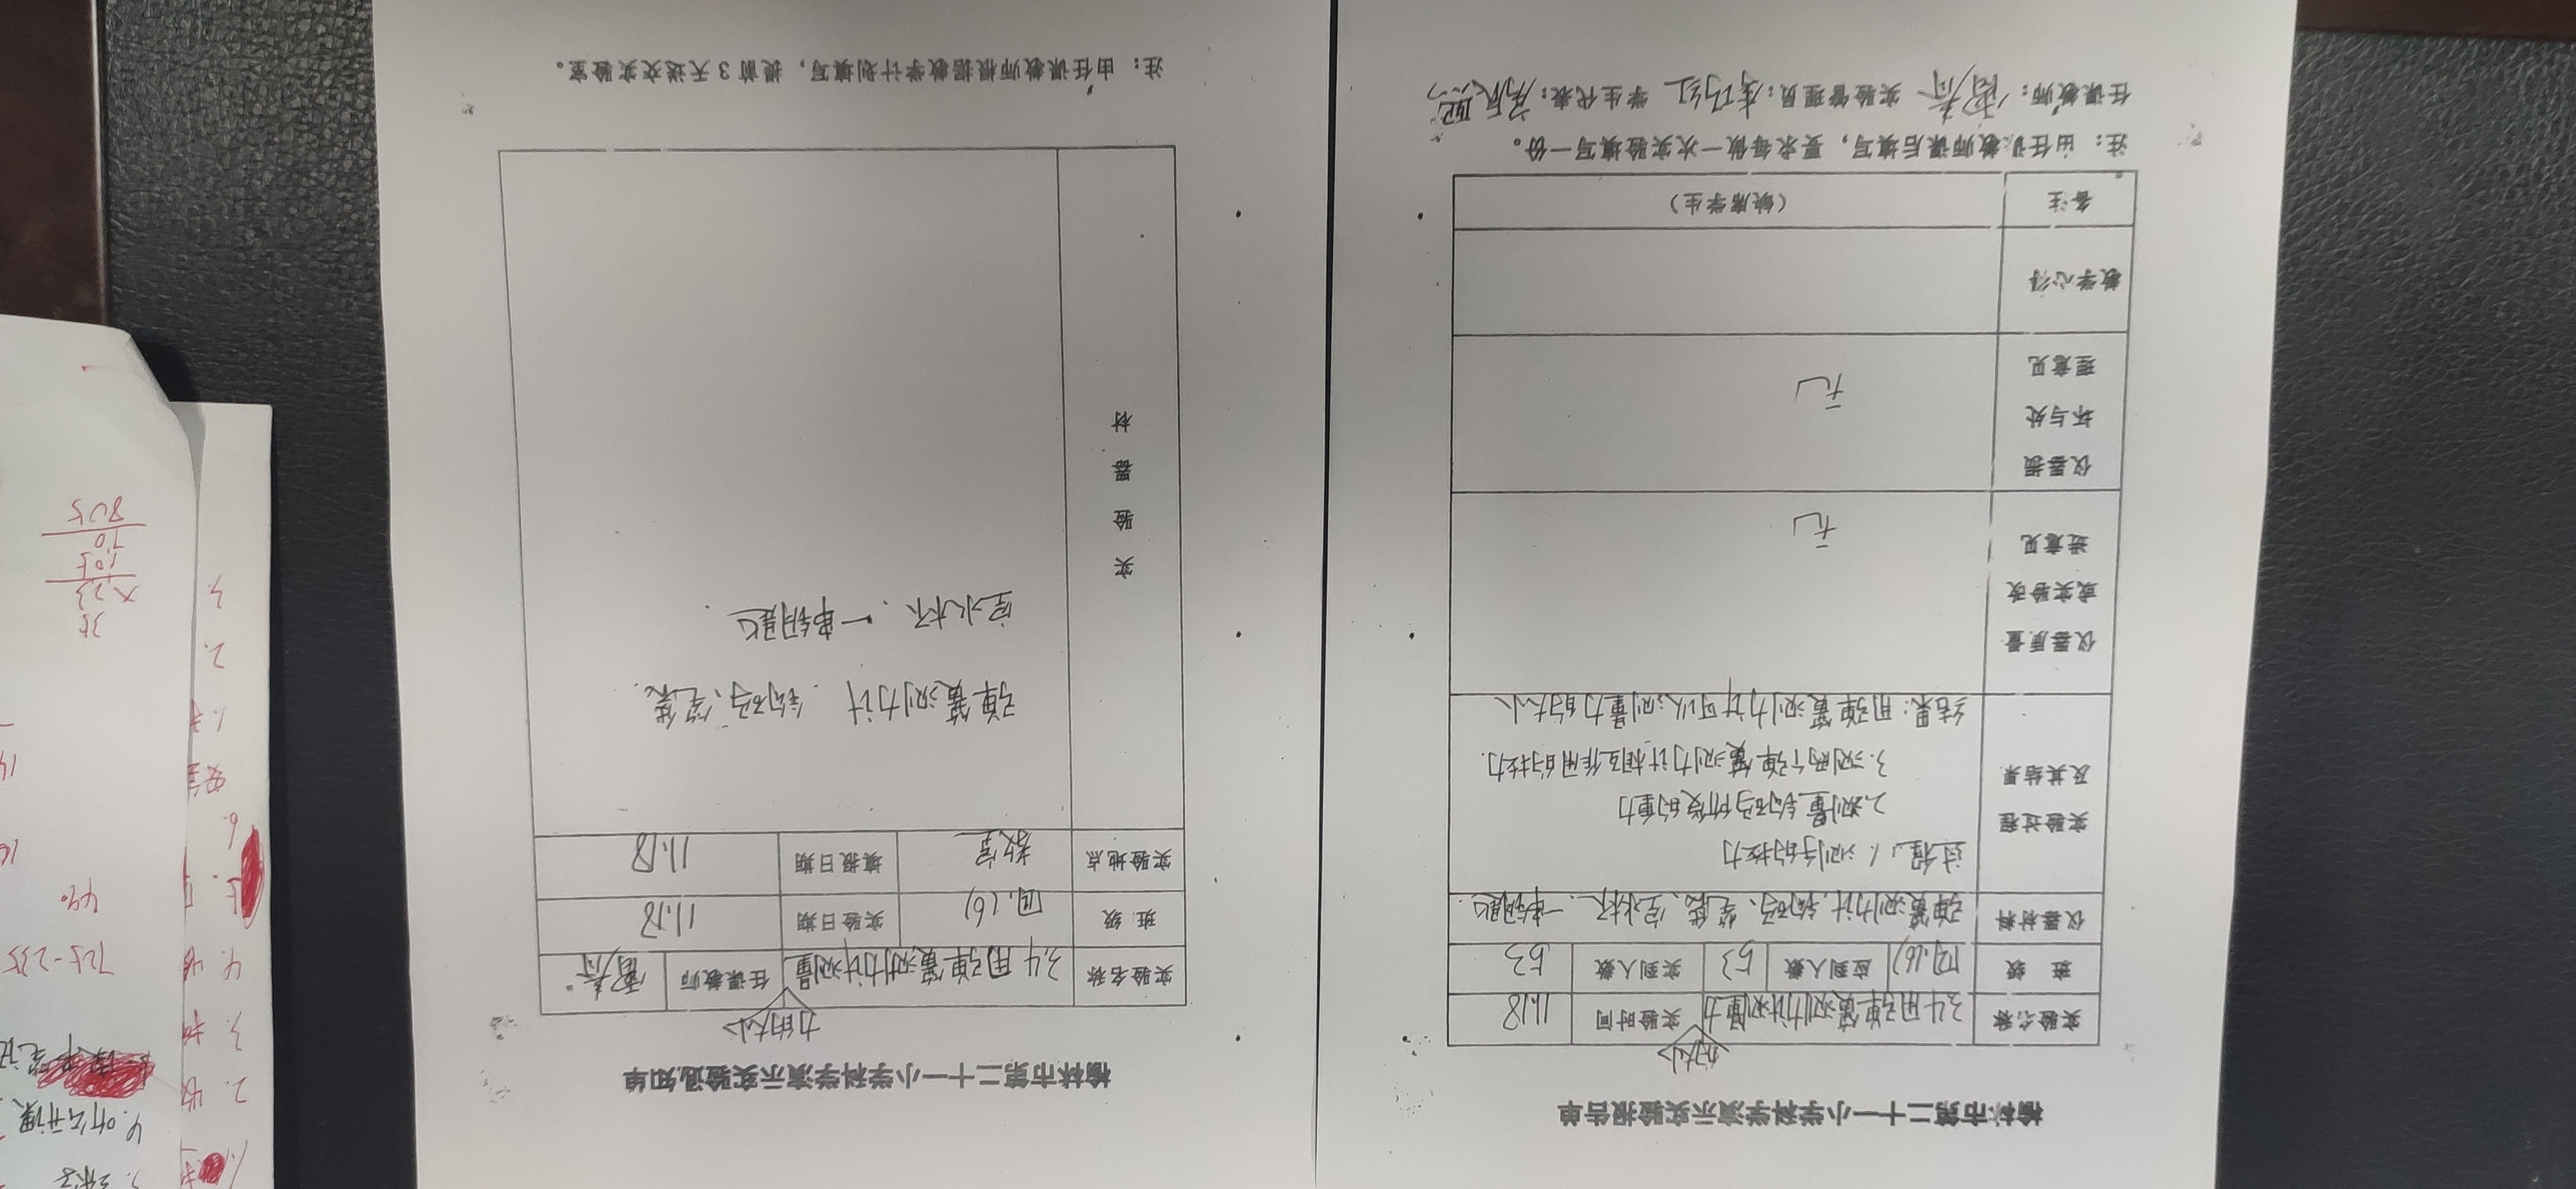 榆林市第二十一小学科学演示实验报告单
实验名称 3.4用弹簧测力计测量力的大小 实验时间 11.18
班 级 四.(6) 应到人数 53 实到人数 53
仪器材料 弹簧测力计,钩码、笔袋、空水杯、一串钥匙.
实验过程及其结果
过程:1.测手的拉力
2.测量钩码所受的重力
3.测两个弹簧测力计相互作用的拉力.
结果:用弹簧测力计可以测量力的大小
仪器质量或实验改进意见 无
仪器损坏与处理意见 无
教学心得
备注 (缺席学生)
注:由任课教师课后填写,要求每做一次实验填写一份。
任课教师: 实验管理员: 学生代表:
榆林市第二十一小学科学演示实验通知单
实验名称 3.4用弹簧测力计测量力的大小 任课教师
班 级 四.(6) 实验日期 11.18
实验地点 教室 填报日期 11.18
实验器材
弹簧测力计.钩码、笔袋.
空水杯.一串钥匙
注:由任课教师根据教学计划填写,提前3天送交实验室。
4.听公开课
725-235
490
35
×23
105
70
805